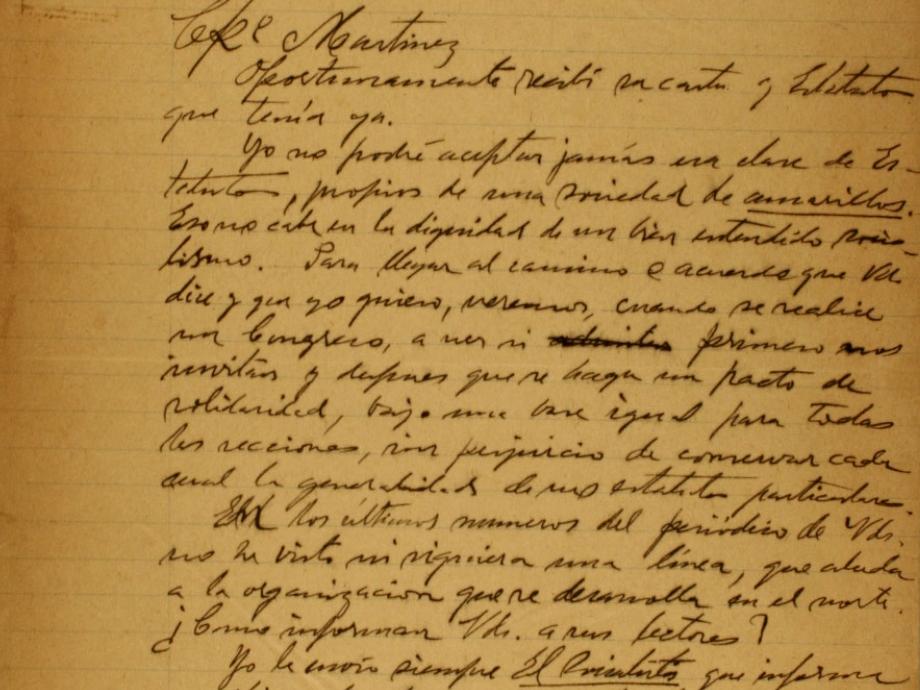 Cp. Martinez
Oportunamente recibí su carta y Estatuto
que tenía ya.
Yo no podré aceptar jamás esa clase de Es-
tatutos, propios de una sociedad de amarillos.
Eso no cabe en la dignidad de un bien entendido socia
lismo. Para llegar al camino o acuerdo que Vd.
dice y que yo quiero, veremos, cuando se realice
un Congreso, a ver si primero nos
invitan y despues que se haga un pacto de
solidaridad, bajo una base igual para todas
las secciones, sin perjuicio de conservar cada
cual la generalidad de sus estatutos particulare
En los últimos numeros del periódico de Vds.
no he visto ni siquiera una línea, que aluda
a la organizacion que se desarrolla en el norte.
¿Como informan Vds. a sus lectores?
Yo le envio siempre El que informa